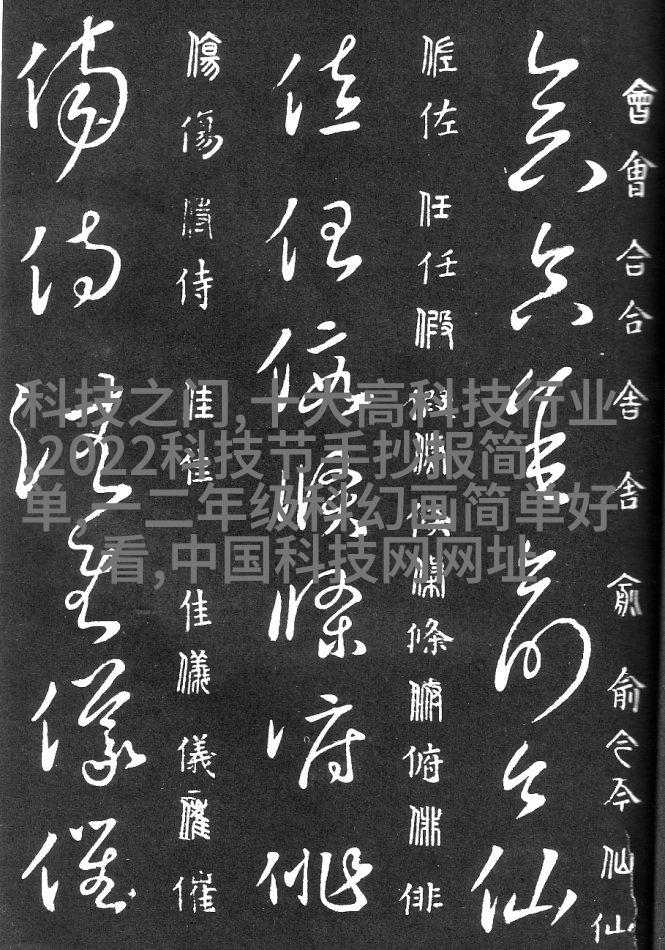 會會合合舍舍俞俞令令仙仙
會合舍俞令仙
佐佐任任假條俯俳俳
佐任假條俯俳
傷傷侍侍佳佳佳儀儀催催
傷侍佳儀催
科技之门,十大高科技行业
2022科技节手抄报简
单,一二年级科幻画简单好
看,中国科技网网址